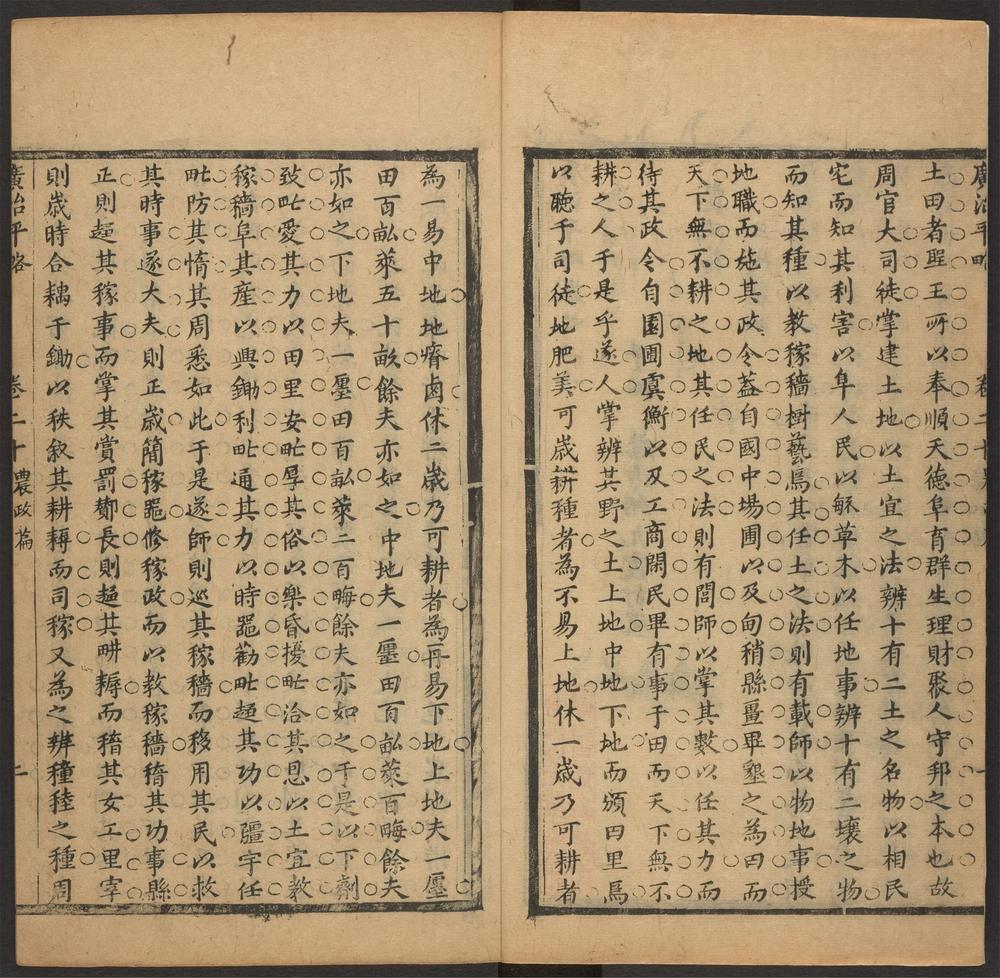 廣治平略　卷二十
土田者聖王所以奉順天德阜育群生理財聚人守邦之本也故
周官大司徒掌建土地以土宜之法辨十有二土之名物以相民
宅而知其利害以阜人民以稣草木以任地事辨十有二壤之物
而知其種以教稼穡樹藝焉其任土之法則有載師以物地事授
地職而施其政令葢自國中場圃以及甸稍縣畺畢墾之為田而
天下無不耕之地其任民之法則有閭師以掌其數以任其力而
待其政令自園圃虞衡以及工商閑民畢有事于田而天下無不
耕之人于是乎遂人掌辨其野之土上地中地下地而頒田里焉
以聽于司徒地肥美可歲耕種者為不易上地休一歲乃可耕者
為一易中地地瘠鹵休二歲乃可耕者為再易下地上地夫一廛
田百畝萊五十畝餘夫亦如之中地夫一廛田百畝萊百畮餘夫
亦如之下地夫一廛田百畝萊二百畮餘夫亦如之于是以下劑
致甿愛其力以田里安甿厚其俗以樂昏擾甿洽其恩以土宜教
稼穡阜其產以興鋤利甿通其力以時器勸甿趨其功以疆宇任
甿防其惰其周悉如此于是遂師則巡其稼穡而移用其民以救
其時事遂大夫則正歲簡稼器修稼政而以教稼穡稽其功事縣
正則趨其稼事而掌其賞罰酇長則趨其耕耨而稽其女工里宰
則歲時合耦于鋤以秩敘其耕耨而司稼又為之辨穜稑之種周
廣治平略　卷二十　農政篇　二